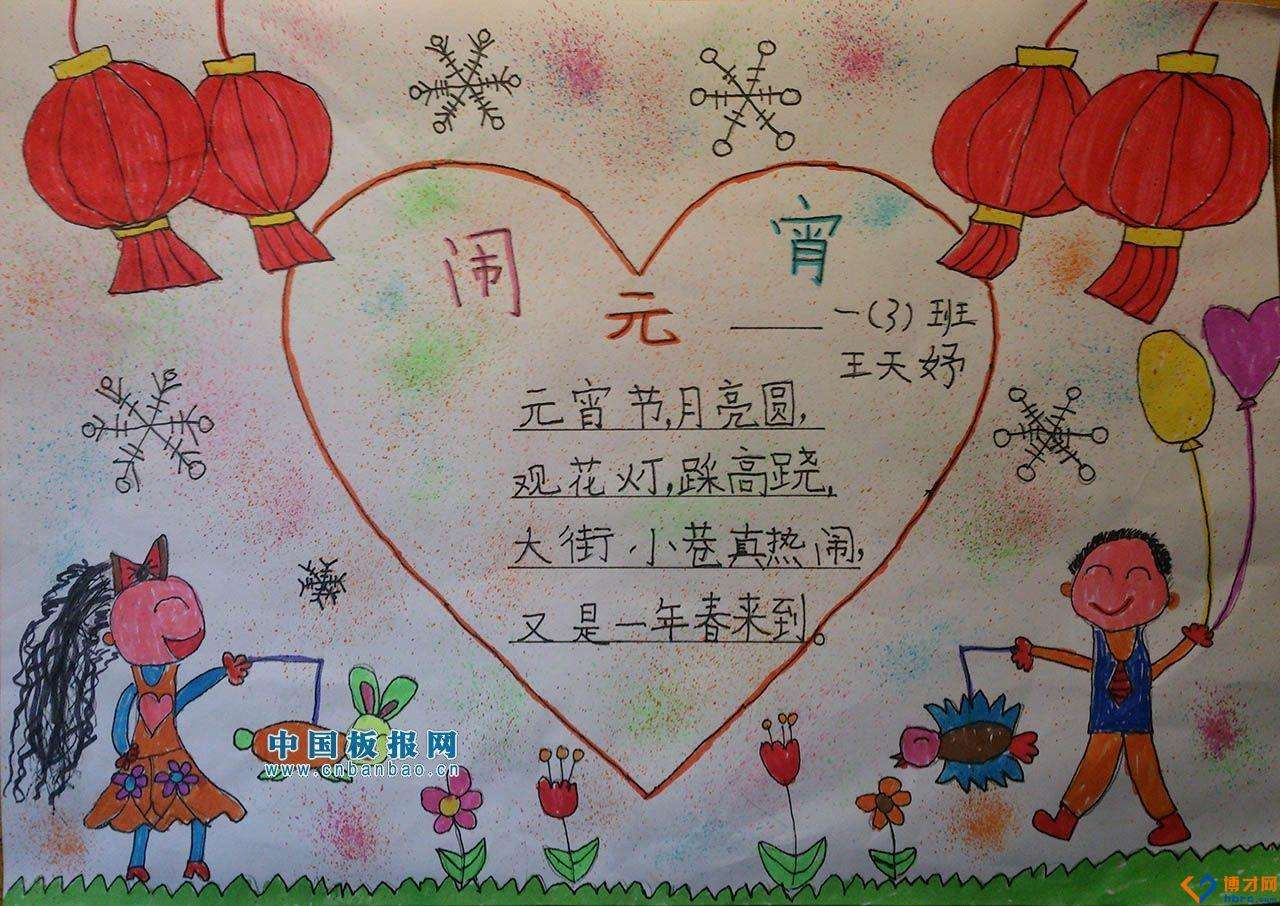 闹元宵
——一(3)班
王天妤
元宵节,月亮圆,
观花灯,踩高跷,
大街小巷真热闹,
又是一年春来到。
中国板报网
www.cnbanbao.cn
博才网
hbrc.com